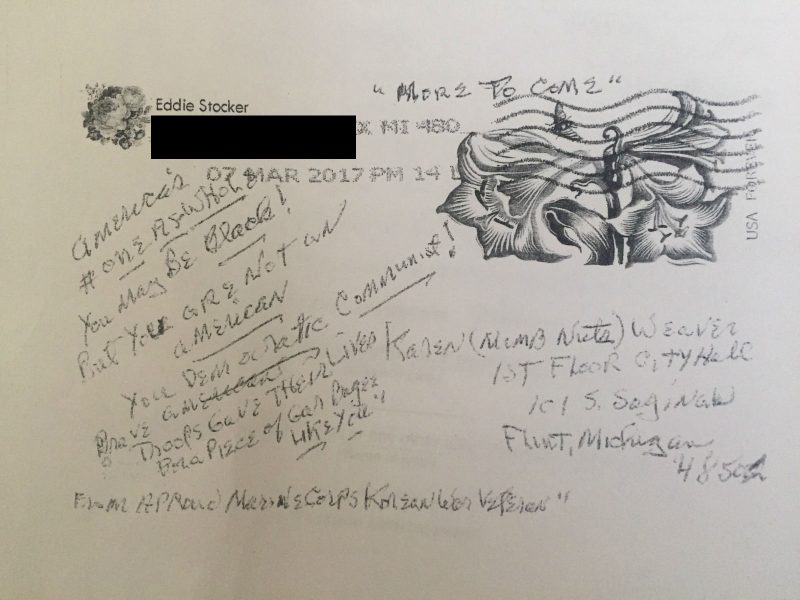 "MORE TO COME"
Eddie Stocker
X MI 480
07 MAR 2017 PM 14 L
USA FOREVER
America's
#one
You May Be Black!
But You ARE NOT an
American
You Democratic Communist!
Brave Americans
Troops Gave Their Lives
For a Piece of Garbage
Like You"
Karen (Numb Nuts) Weaver
1ST Floor City Hall
101 S. Saginaw
Flint, Michigan
48502
From A Proud Marine Corps Korean War Veteran"